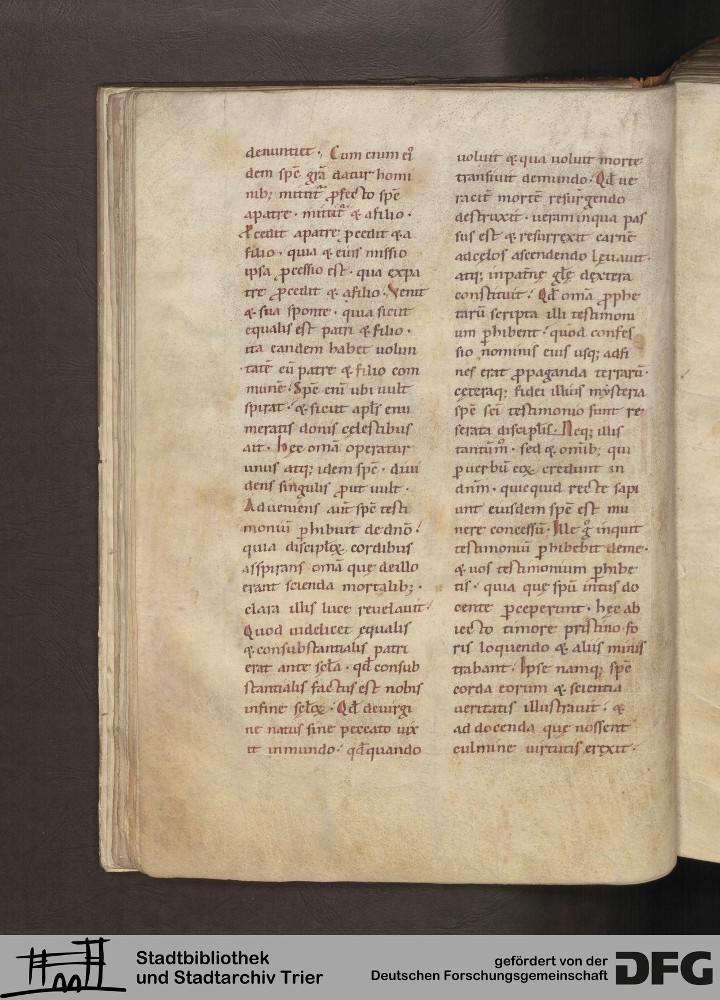 denuntiet. Cum enim ei᷒
dem sp̄s gr̄a datur homi
nib; mittit᷑ ꝓfecto sp̄s
a patre. mittit᷑ & a filio.
Procedit a patre. ꝓcedit & a
filio. quia & eius missio
ipsa ꝓcessio est. qua ex pa
tre ꝓcedit & a filio. Venit
& sua sponte. quia sicut
equalis est patri & filio.
ita eandem habet volun
tatē cū patre & filio com
munē. Sp̄s enī ubi uult
spirat. & sicut apl̄s enu
meratis donis cęlestibus
ait. hęc om̄a operatur
unus atq; idem sp̄s. diui
dens singulis ꝓut uult.
Adueniens aut̄ sp̄s testi
moniū ꝑhibuit de dn̄o.
quia discipl̄oꝝ cordibus
asspirans om̄a quę de illo
erant scienda mortalib;.
clara illis luce reuelauit.
Quod uidelicet ęqualis
& consubstantialis patri
erat ante sc̄la. qd̄ consub
stantialis factus est nobis
in fine sc̄loꝝ. Qd̄ de uirgi
ne natus sine peccato uix
it in mundo. qd̄ quando
uoluit & qua uoluit morte
transiuit de mundo. Qd̄ ue
racit̄ mortē resurgendo
destruxit. ueram in qua pas
sus est & resurrexit carnē
ad cęlos ascendendo leuauit.
atq; in pat̄nę gl̄ę dextera
constituit. Qd̄ om̄a ꝓphe
tarū scripta illi testimoni
um ꝑhibent. quod confes
sio nominis eius usq; ad fi
nes erat ꝓpaganda terrarū.
cęteraq; fidei illius mysteria
sp̄s sc̄i testimonio sunt re
serata discipl̄is. Neq; illis
tantūm̊. sed & om̄ib; qui
ꝑ uerbū eoꝝ credunt in
dn̄m. quicquid recte sapi
unt eiusdem sp̄s est mu
nere concessū. Ille g̊ inquit
testimoniū ꝑhibebit de me.
& uos testimonium ꝑhibe
tis. quia que sp̄u intus do
cente ꝑceperunt. hęc ab
iecto timore pristino fo
ris loquendo & aliis minis
trabant. Ipse namq; sp̄s
corda eorum & scientia
ueritatis illustrauit. &
ad docenda quę nossent
culmine uirtutis erexit.
Stadtbibliothek
und Stadtarchiv Trier
gefördert von der
Deutschen Forschungsgemeinschaft
DFG